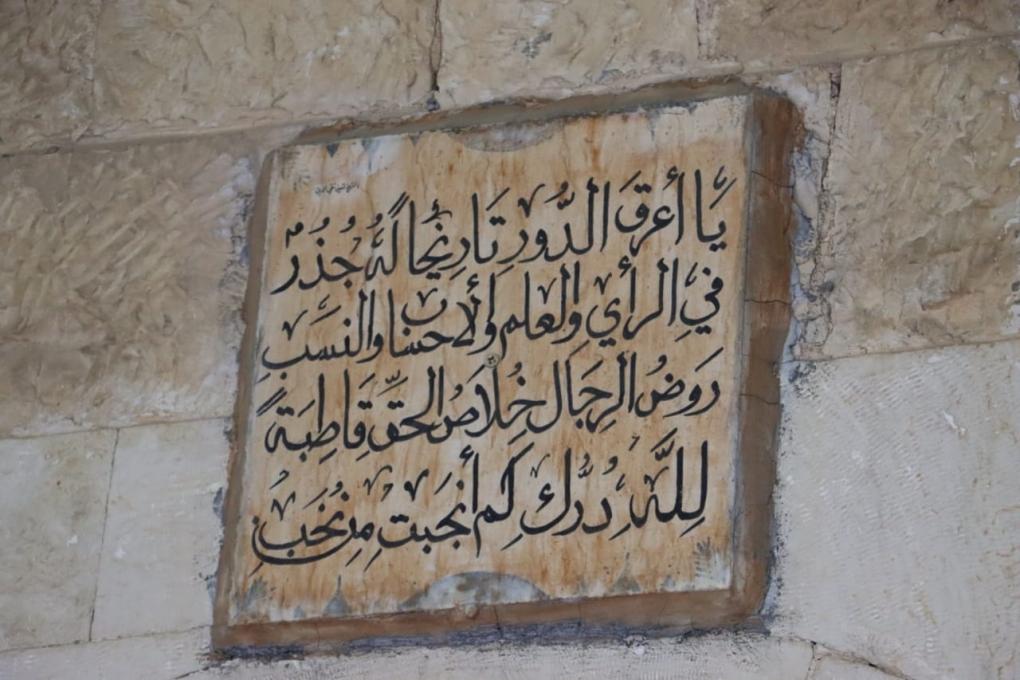 يَا أعرَقَ الدُّورِ تَارِيْخاً لَهُ جُذُرٌ
فيِ الرأيِ والعلمِ والإحسانِ والنسَبِ
رَوَضُ الرِجَالِ خُلَاصُ الحقِّ قَاطِبَةً
لِلَّهِ دَرُّكِ كم أنجَبتِ مِن نُخَبِ